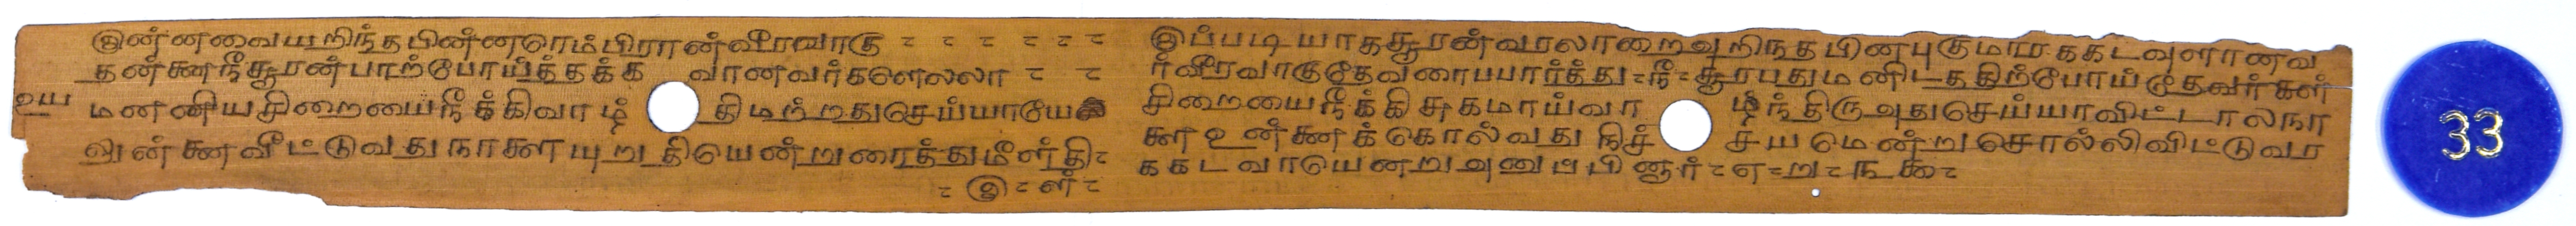 இன்னவையறிந்தபின்னரெம்பிரான்வீரவாகு - - - - - -
தன்னைநீசூரன்பாற்போய்த்தக்க வானவர்களெல்லா - -
உய மன்னியசிறையைநீக்கிவாழ் திமற்றதுசெய்யாயே
லுன்னைவீட்டுவதுநாளையுறுதியென்றுரைத்துமீள்தி-
- இ - ள் -
இப்படியாகசூரன்வரலாறைஅறிந்தபினபுகுமாரககடவுளானவ
ர்வீரவாகுதேவரைபபார்த்து-நீ-சூரபதுமனிடதகிற்போய்தேவர்கள்
சிறையைநீக்கிசுகமாய்வா ழ்ந்திருஅதுசெய்யாவிட்டாலநா
ளைஉன்னைக்கொல்வதுநிச் சயமென்றுசொல்லிவிட்டுவர
ககடவாயெனறுஅனுப்பினார்-எ-று-
33